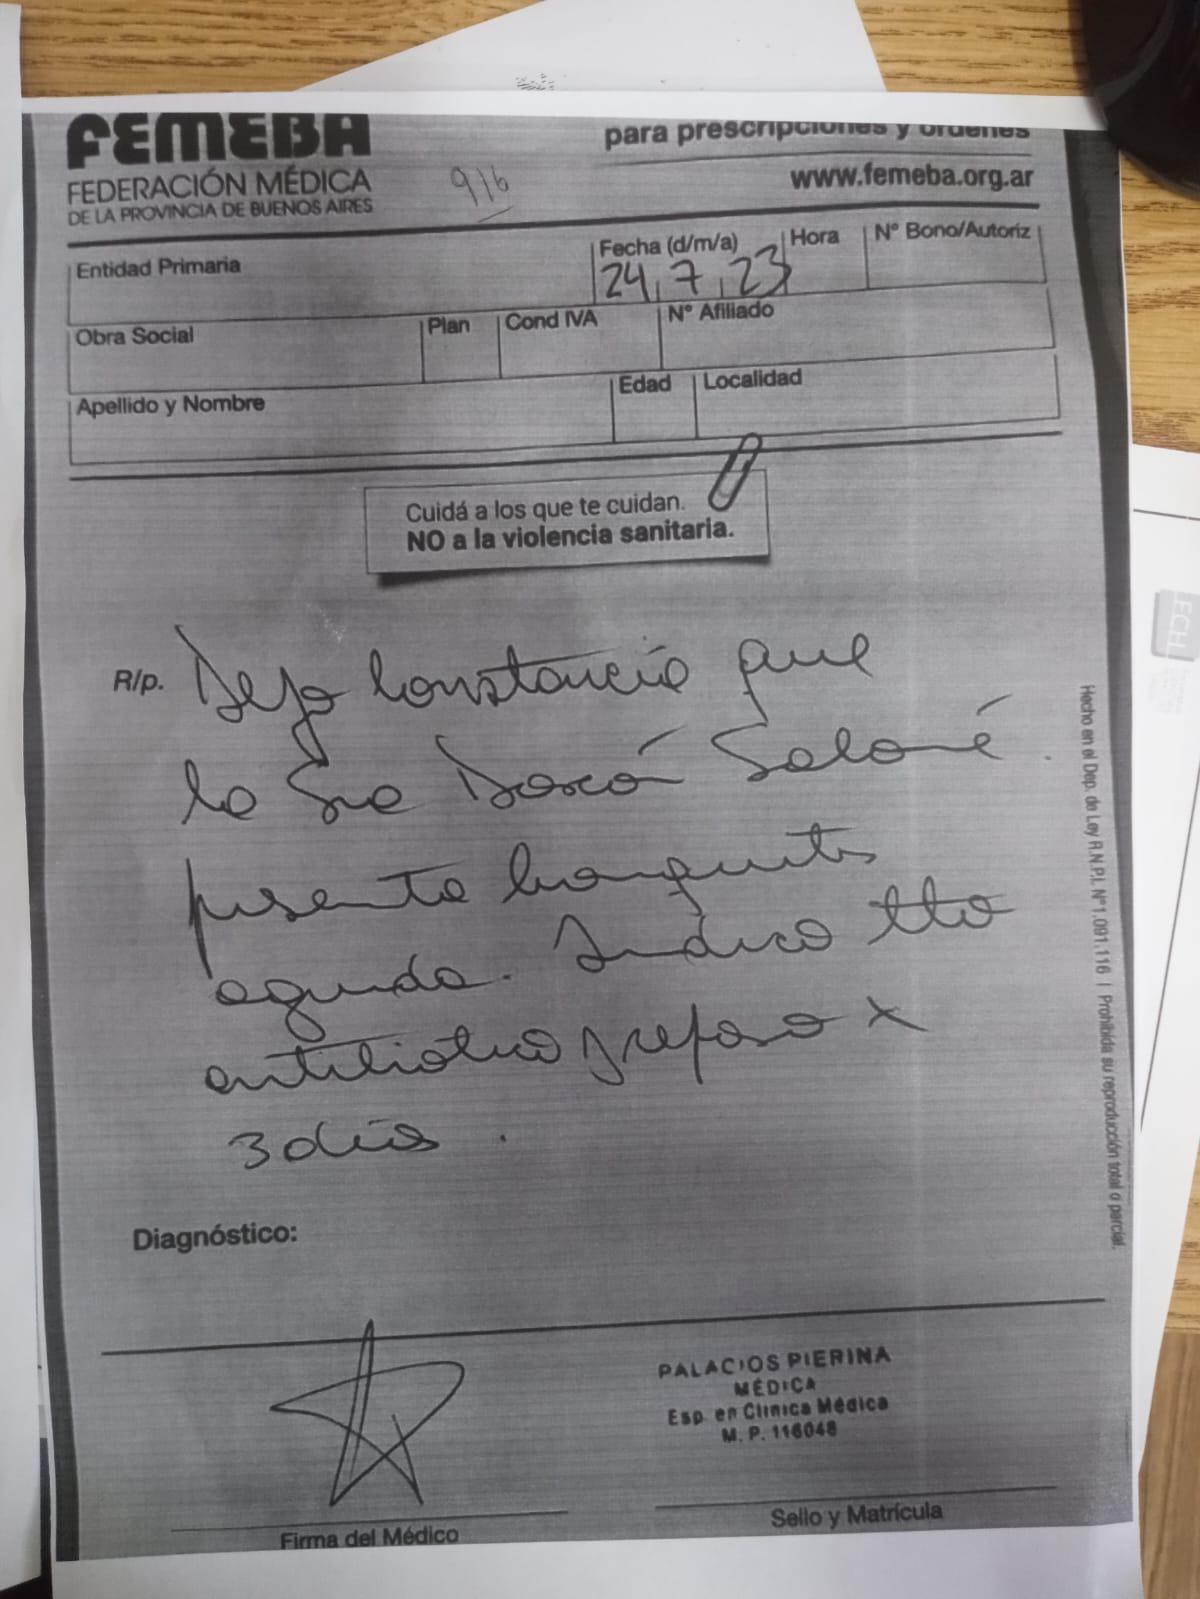 FEMEBA
FEDERACIÓN MÉDICA
DE LA PROVINCIA DE BUENOS AIRES
916
para prescripciones y órdenes
www.femeba.org.ar
Entidad Primaria
Fecha (d/m/a)
24, 7, 23
Hora
Nº Bono/Autoriz
Obra Social
Plan
Cond IVA
Nº Afiliado
Apellido y Nombre
Edad
Localidad
Cuidá a los que te cuidan.
NO a la violencia sanitaria.
R/p.
Dejo constancia que
la Sra Salomé
presenta
aguda. Indico tto
antibiotico y reposo x
3 dias.
Diagnóstico:
PALACIOS PIERINA
MÉDICA
Esp. en Clínica Médica
M. P. 116048
Firma del Médico
Sello y Matrícula
Hecho en el Dep. de Ley R.N.P.I. Nº1.091.116 | Prohibida su reproducción total o parcial.